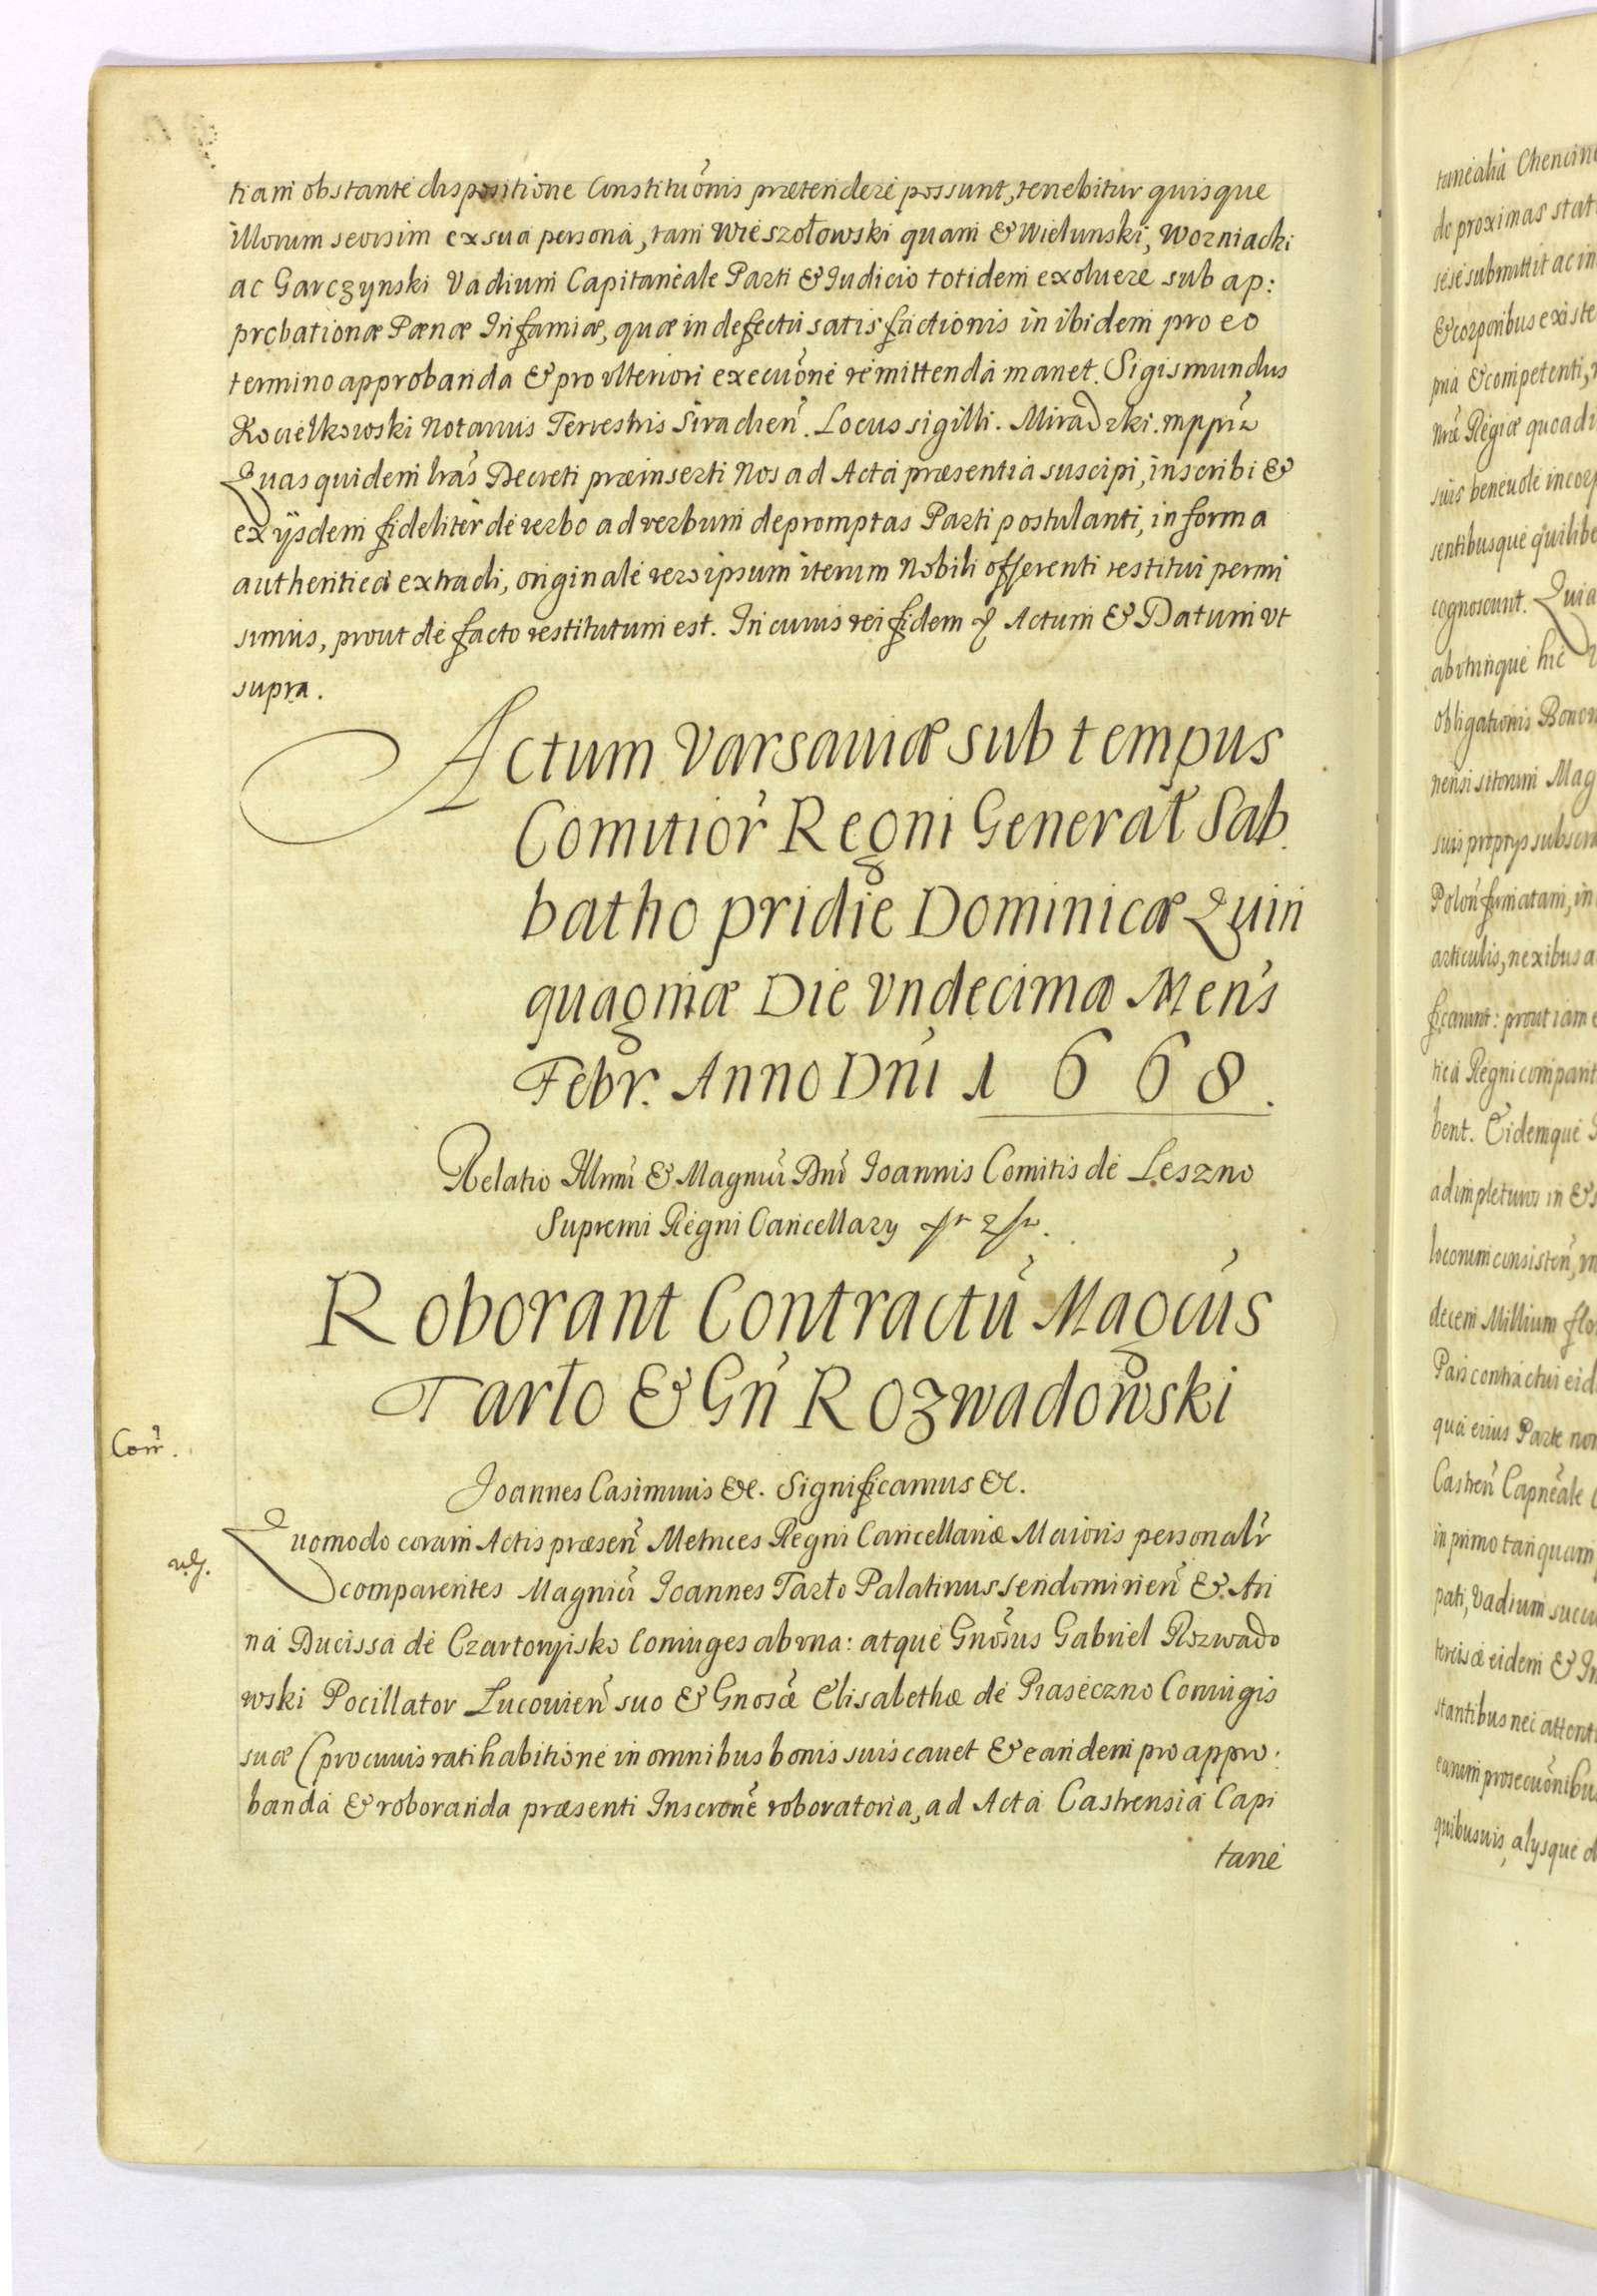 tiam obstante dispositione Constituõnis prætendere possunt, tenebitur quisque
illorum seorsim ex sua persona, tam Wieszołowski quam & Wielunski, Wozniacki
ac Garczynski Vadium Capitaneale Parti & Iudicio totidem exoluere sub ap:
probationæ Pœnæ Infamiæ, quæ in defectu satisfactionis in ibidem pro eo
termino approbanda & pro vlteriori execuõne remittenda manet. Sigismundus
Kocielkowski Notarius Terrestris Siradien̄. Locus sigilli. Miradzki. mppr̃a
Quas quidem lrãs Decreti præinserti Nos ad Acta præsentia suscipi, inscribi &
ex ijsdem fideliter de verbo ad verbum depromptas Parti postulanti, in forma
authentica extradi, originale vero ipsum iterum Nobili offerenti restitui permi
simus, prout de facto restitutum est. In cuius rei fidem Actum & Datum vt
supra.
Actum Varsauiæ sub tempus
Comitior̃ Regni Generał Sab
batho pridie Dominicæ Quin
quagmæ Die Vndecima Mens̃
Febr. Anno Dñi 1668.
Relatio Illmi & Magnci Dñi Ioannis Comitis de Leszno
Supremi Regni Cancellary
Roborant Contractũ Magcus̃
Tarło & Gñ Rozwadowski
Con̄.
Joannes Casimirus &c. Significamus &c.
Quomodo coram Actis præsen̄ Metrices Regni Cancellariæ Maioris personalr̃
comparentes Magnici Ioannes Tarło Palatinus sendomirien̄ & An
na Ducissa de Czartoryisko Coniuges ab vna: atque Gnõsus Gabriel Rozwado
wski Pocillator Lucouien̄ suo & Gnosæ Elisabethæ de Piaseczno Coniugis
suæ (pro cuius ratihabitione in omnibus bonis suis cauet & eandem pro appro:
banda & roboranda præsenti Inscrone roboratoria, ad Acta Castrensia Capi
tane
tanealia Chencin
de proximas stat
sese submittit ac in
& corporibus existe
pria & competenti,
Nræ Regiæ quoad i
suis beneuole incorp
sentibusque quilibe
cognoscunt. Quia
ab vtrinque hic
obligationis Bonor
nensi sitorum Mag
suis proprys subscri
Polon̄ firmatam, in
articulis, nexibus a
ficarunt: prout iam
tica Regni compant
bent. Eidemque
adimpleturos in &
locorum consisten̄,
decem Millium flo
Pari contractui eid
qua eius Parte non
Castren̄ Capneale
in primo tanquam
pati, Vadium succu
tercisæ eidem & In
stantibus nec attent
earum prosecuõnibu
quibusuis, alysque d